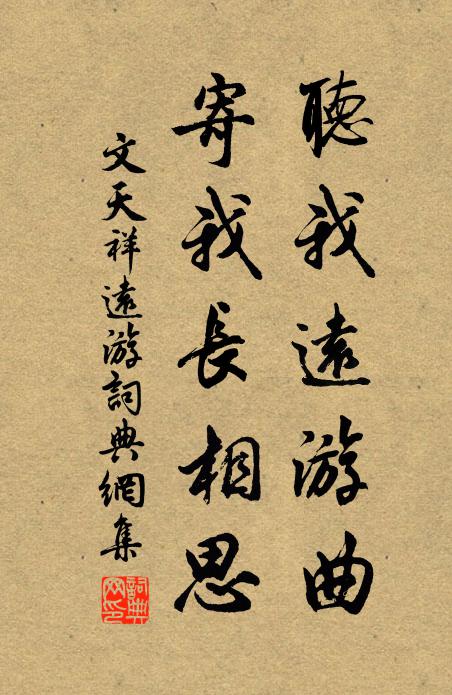 聽我遠游曲
寄我長相思
文天祥遠游詞典網集
詞典網印